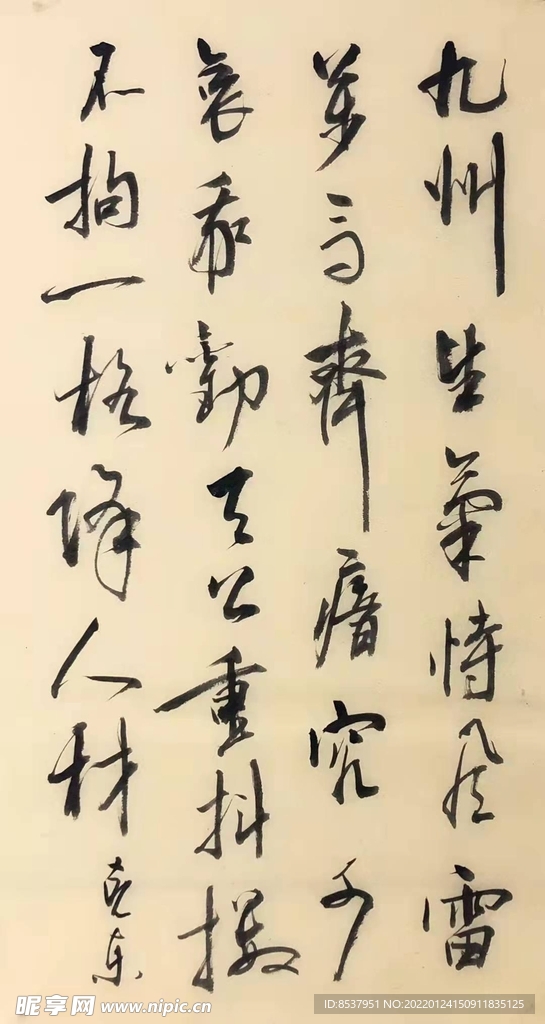 九州生氣恃風雷
萬馬齊瘖究可
哀我勸天公重抖擻
不拘一格降人材
克东
昵享网 www.nipic.cn
ID:8537951 NO:20220124150911835125